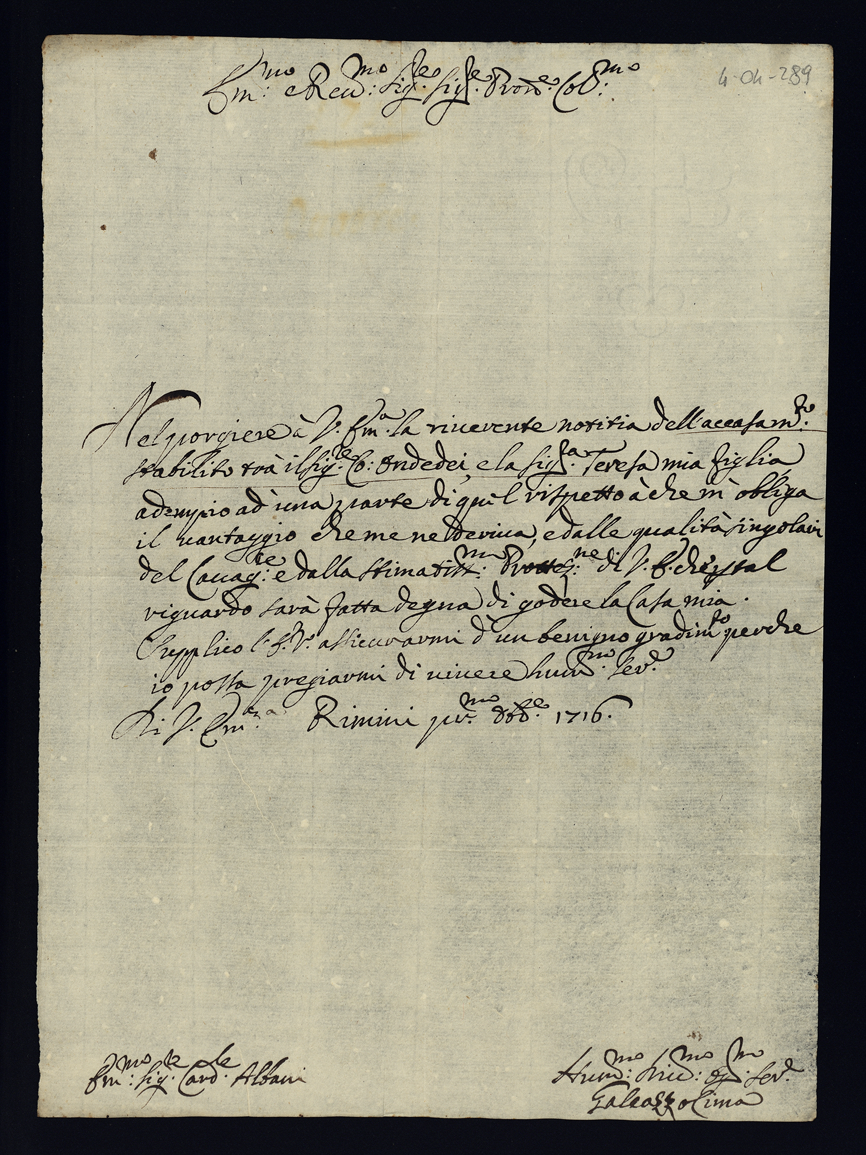 4-04-289
Em:mo e Reu:mo Sig:re Sig:re Pron:e Col:mo
Nel porgiere à V. Em:a la riuerente notitia dell'accasam:to
stabilito trà il Sig:re Co: Ondedei, e la Sig:ra Teresa mia figlia,
adempio ad una parte di quel rispetto à che m'obliga
il uantaggio che me ne deriua, e dalle qualità singolari
del Cauag:re e dalla stimatiss:ma Prottez:ne di V. E. che p tal
riguardo sarà fatta degna di godere la Casa mia.
Supplico l'E. V. assicurarmi d'un benigno gradim:to perche
io possa pregiarmi di uiuere hum:mo ser:e
Di V. Em:za Rimini pr:mo Obb:e 1716.
Em:mo Sig:re Card:le Albani
Hum:mo Diu:mo Ob:mo Ser:e
Galeazzo Cima